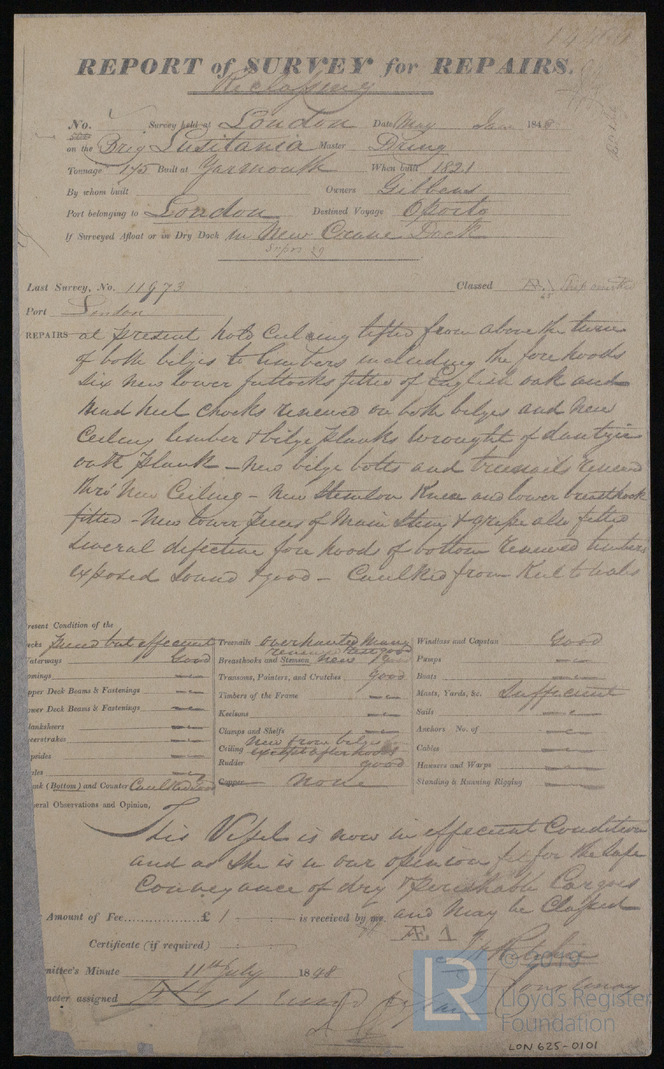 REPORT of SURVEY for REPAIRS.
Reclassing
No. Survey held at London Date May June 1848
on the Brig Lusitania Master Dring
Tonnage 175 Built at Yarmouth When built 1821
By whom built Owners Gibbens
Port belonging to London Destined Voyage Oporto
If Surveyed Afloat or in Dry Dock in New Crane Dock
Last Survey, No. 11973 Classed Æ
Port London
REPAIRS at present hold Ceileing lifted from above the turn
of both bilges to limbers including the fore hoods
six new lower futtocks fitted of English oak and
heel chocks renewed on both bilges and new
Ceiling limber & bilge planks wrought of dantzic
oak plank – New bilge bolts and treenails renewed
thro' New Ceiling – New Stemson Knee and lower breasthook
fitted – New lower pieces of Main Stem & gripe also fitted
several defective fore hoods of bottom renewed timbers
exposed sound & good – Caulked from Keel to wales
resent Condition of the
ecks but effecient Treenails overhauled many renewed rest good Windlass and Capstan good
aterways Good Breasthooks and Stemson New & good Pumps
omings Transoms, Pointers, and Crutches good Boats
pper Deck Beams & Fastenings Timbers of the Frame Masts, Yards, &c. Sufficient
ower Deck Beams & Fastenings Keelsons Sails
lanksheers Clamps and Shelfs Anchors No. of
eerstrakes Ceiling New from bilges except afterhoods Cables
opsides Rudder good Hawsers and Warps
ales Copper none Standing & Running Rigging
ank (Bottom) and Counter Caulked
eral Observations and Opinion,
This Vessel is now in effecient Condition
and as she is in our opinion fit for the safe
Conveyance of dry & perishable Cargoes
and may be Classed
Amount of Fee............ £ 1 is received by me, Æ 1
Certificate (if required)
mittee's Minute 11th July 1848
racter assigned Æ 1
LR
© 2019
Lloyd's Register
Foundation
LON 625-0101